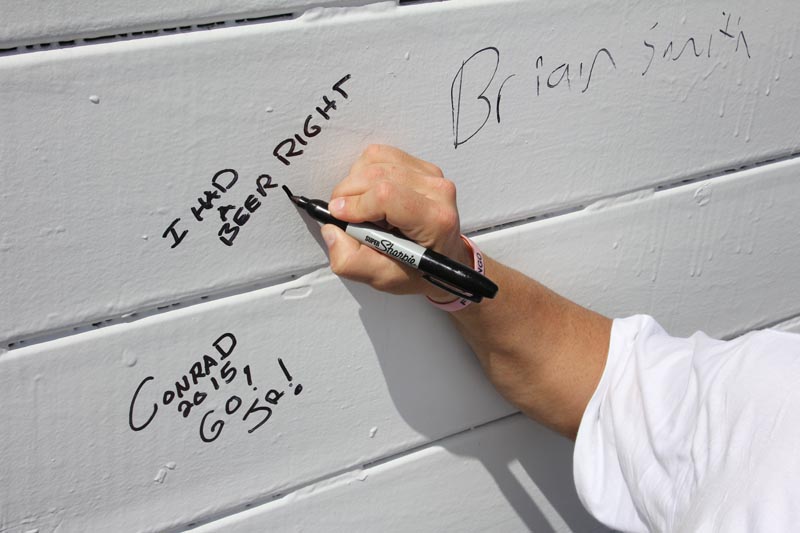 Brian Smith
I HAD
A
BEER RIGHT
SUPER Sharpie
CONRAD
2015!
GO!
JR!